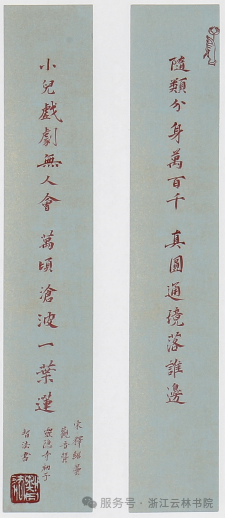 隨類分身萬百千 真圓通境落誰邊
小兒戲劇無人會 萬頃滄波一葉蓮
宋釋紹曇
觀音贊
服务号 · 浙江云林书院